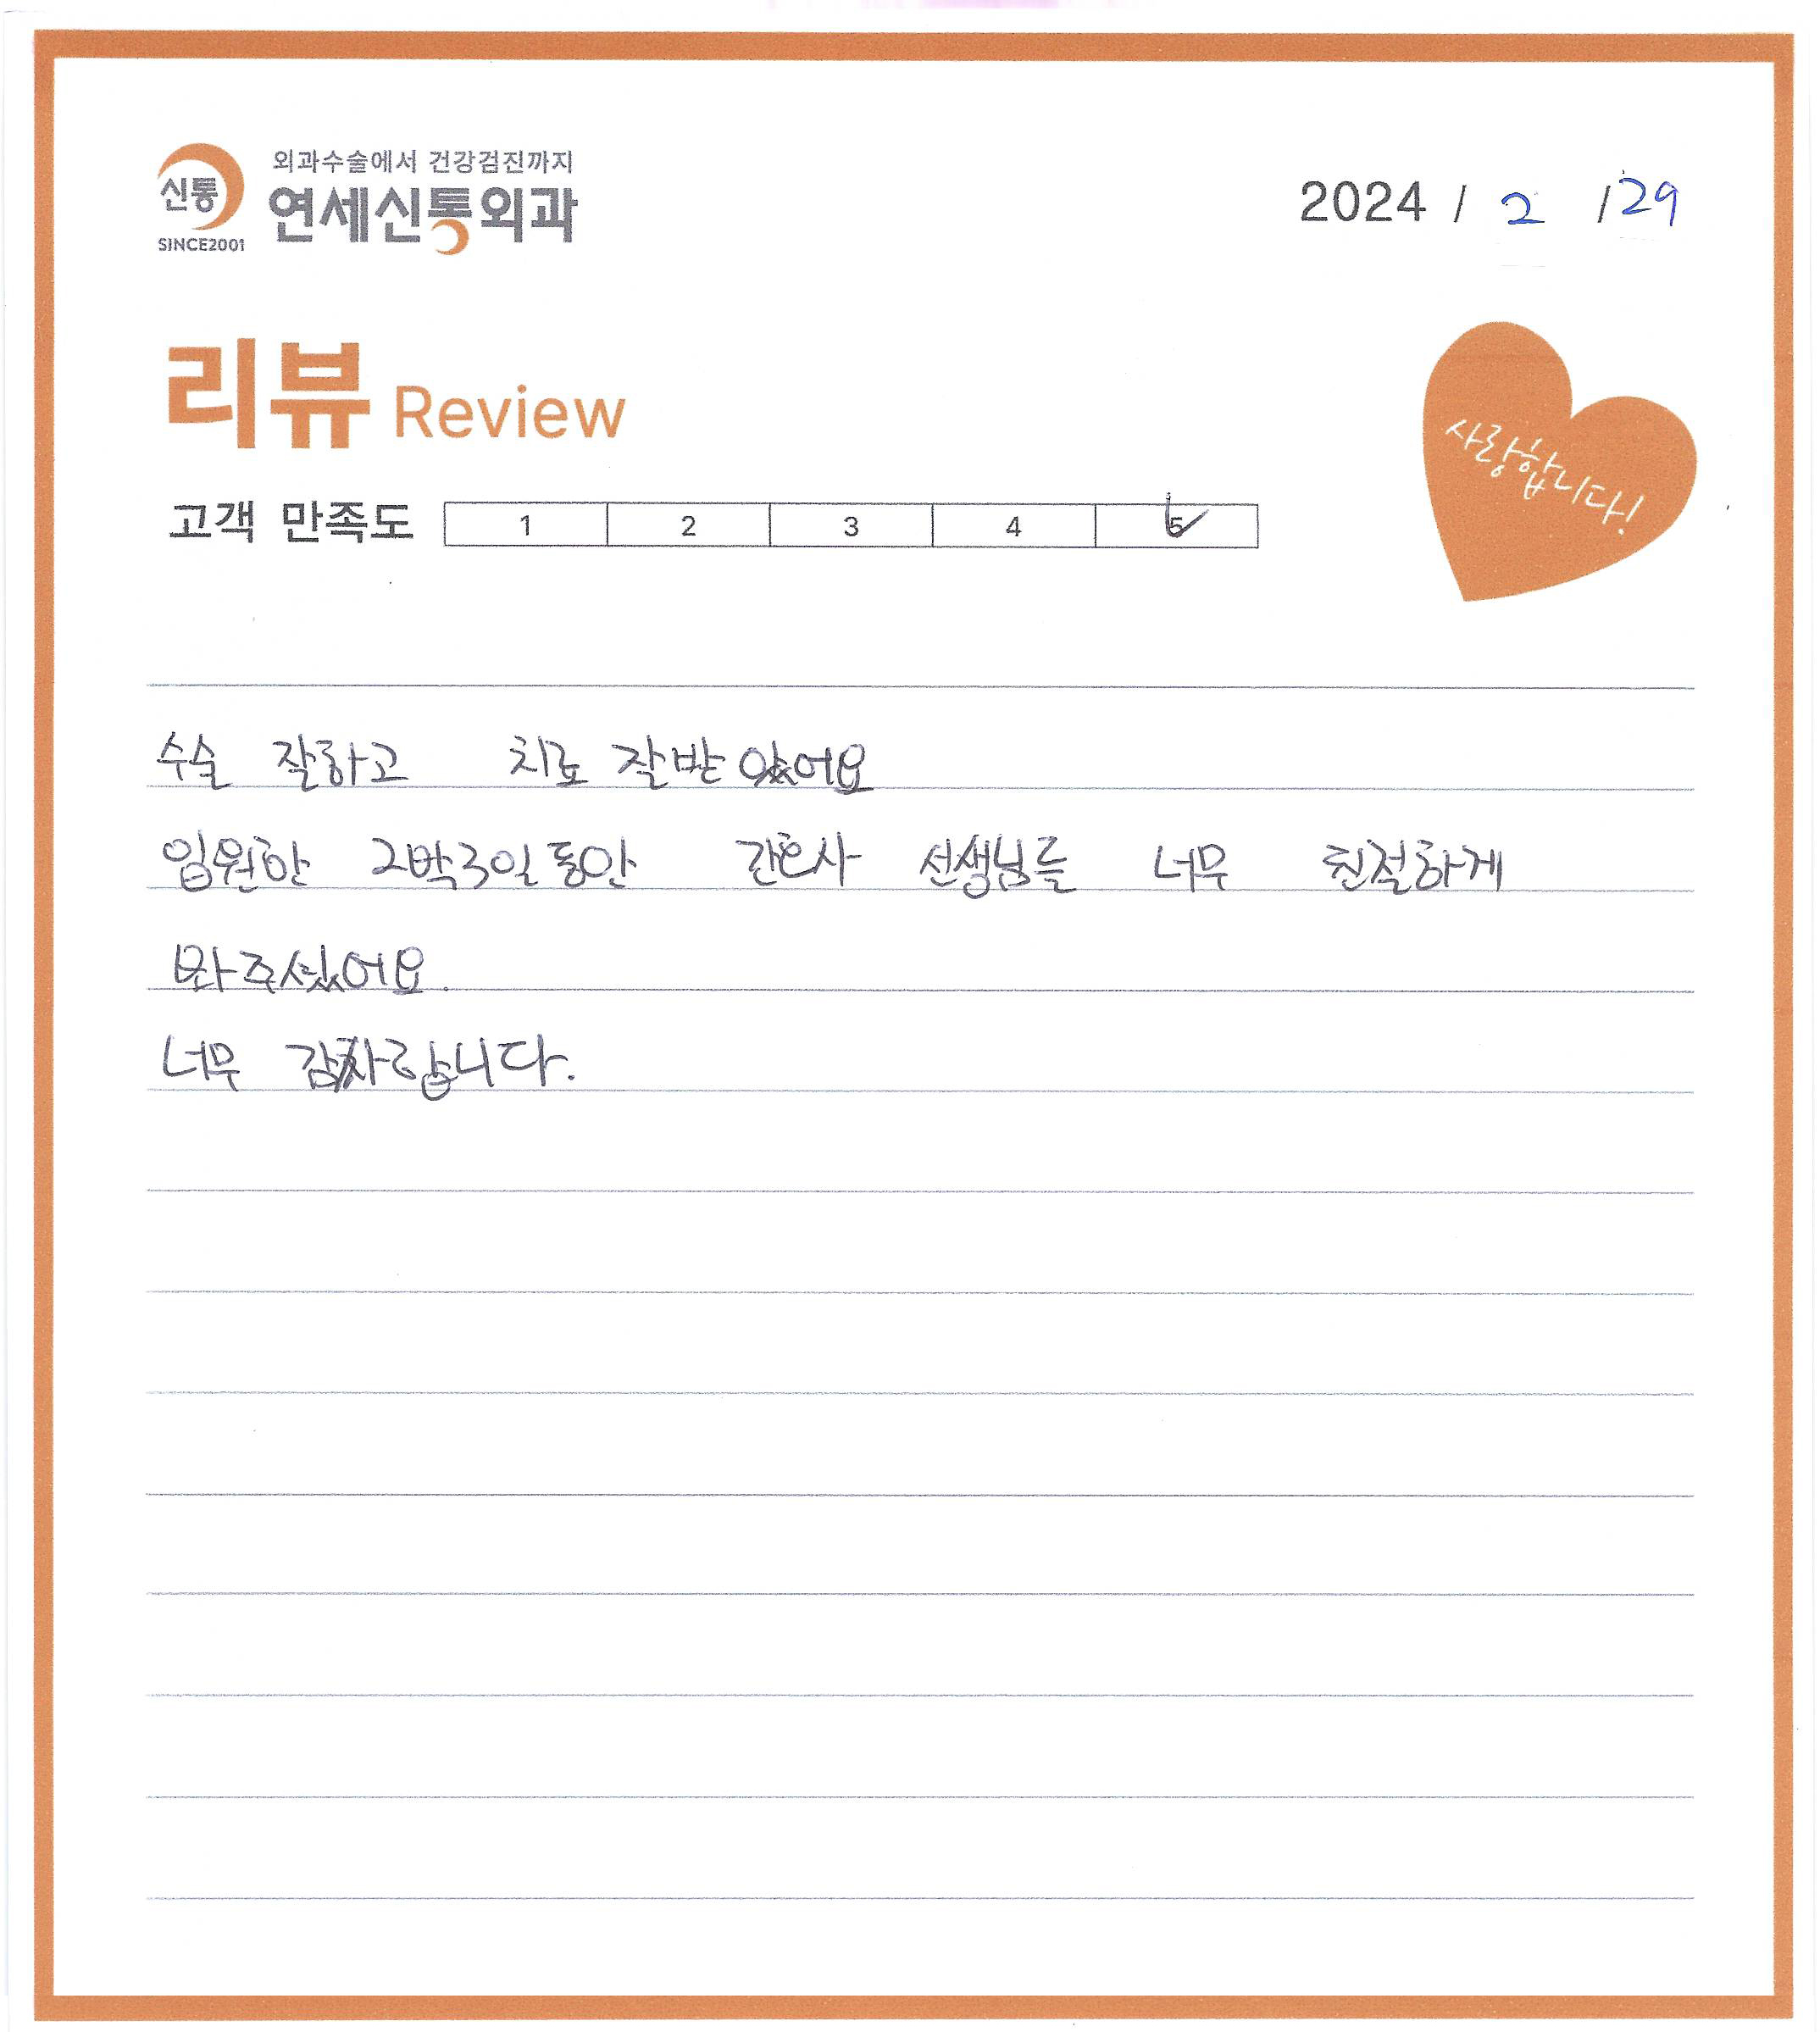 외과수술에서 건강검진까지
신통
연세신통외과
SINCE2001
2024 / 2 / 29
리뷰 Review
사랑합니다!
고객 만족도 1 2 3 4 5
수술 잘하고 치료 잘받았어요
입원한 2박3일동안 간호사 선생님들 너무 친절하게
봐주셨어요.
너무 감사합니다.